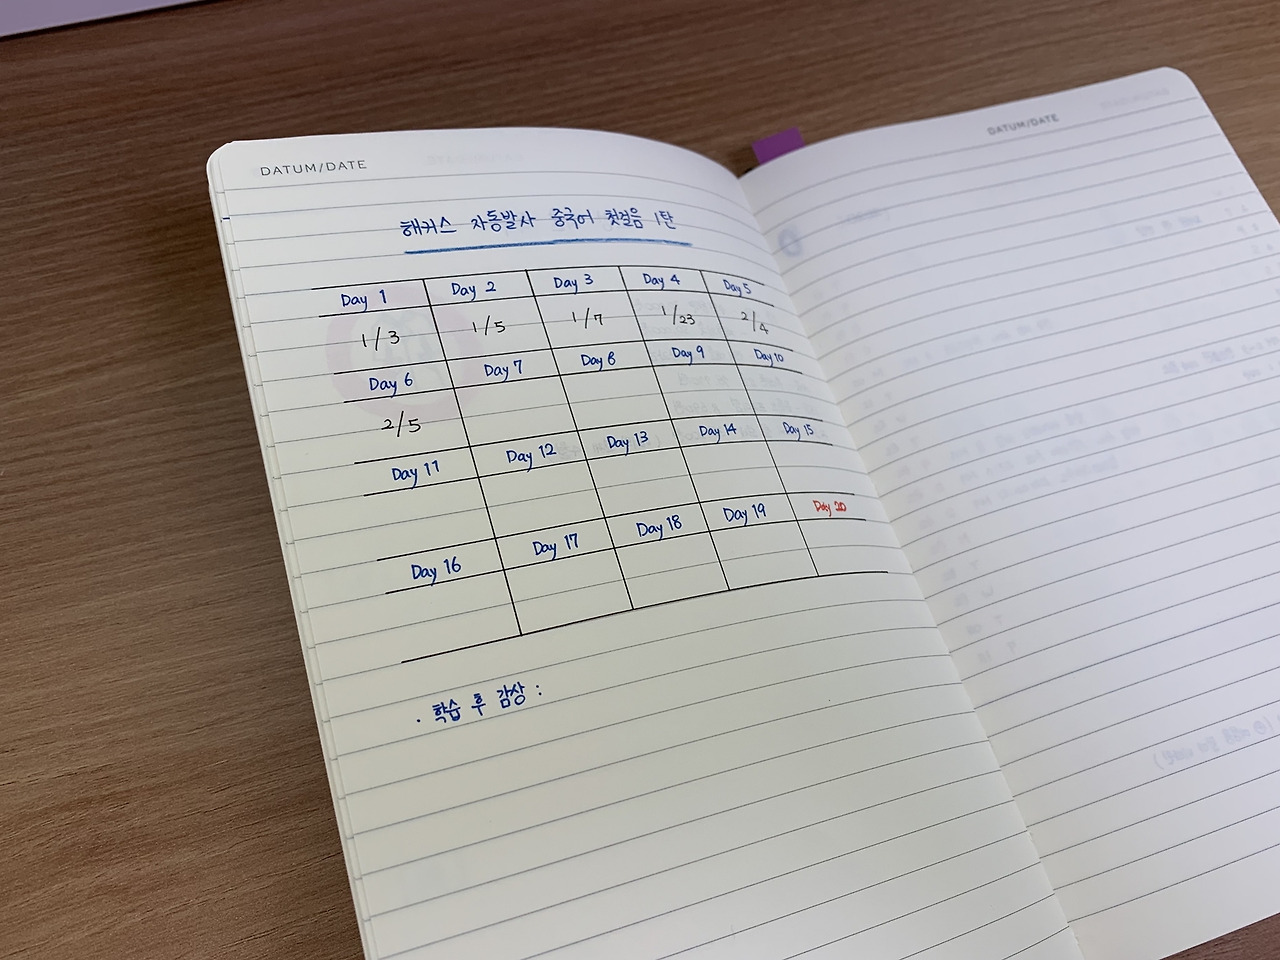 DATUM/DATE
해커스 자동발사 중국어 첫걸음 1탄
Day 1 Day 2 Day 3 Day 4 Day 5
1/3 1/5 1/7 1/23 2/4
Day 6 Day 7 Day 8 Day 9 Day 10
2/5
Day 11 Day 12 Day 13 Day 14 Day 15
Day 16 Day 17 Day 18 Day 19 Day 20
· 학습 후 감상 :
DATUM/DATE